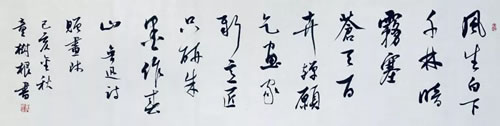 風生白下
千林暗
霧塞
蒼天百
卉殫願
乞畫家
新意匠
只研朱
墨作春
山 魯迅詩
贈畫師
己亥金秋
童樹根書